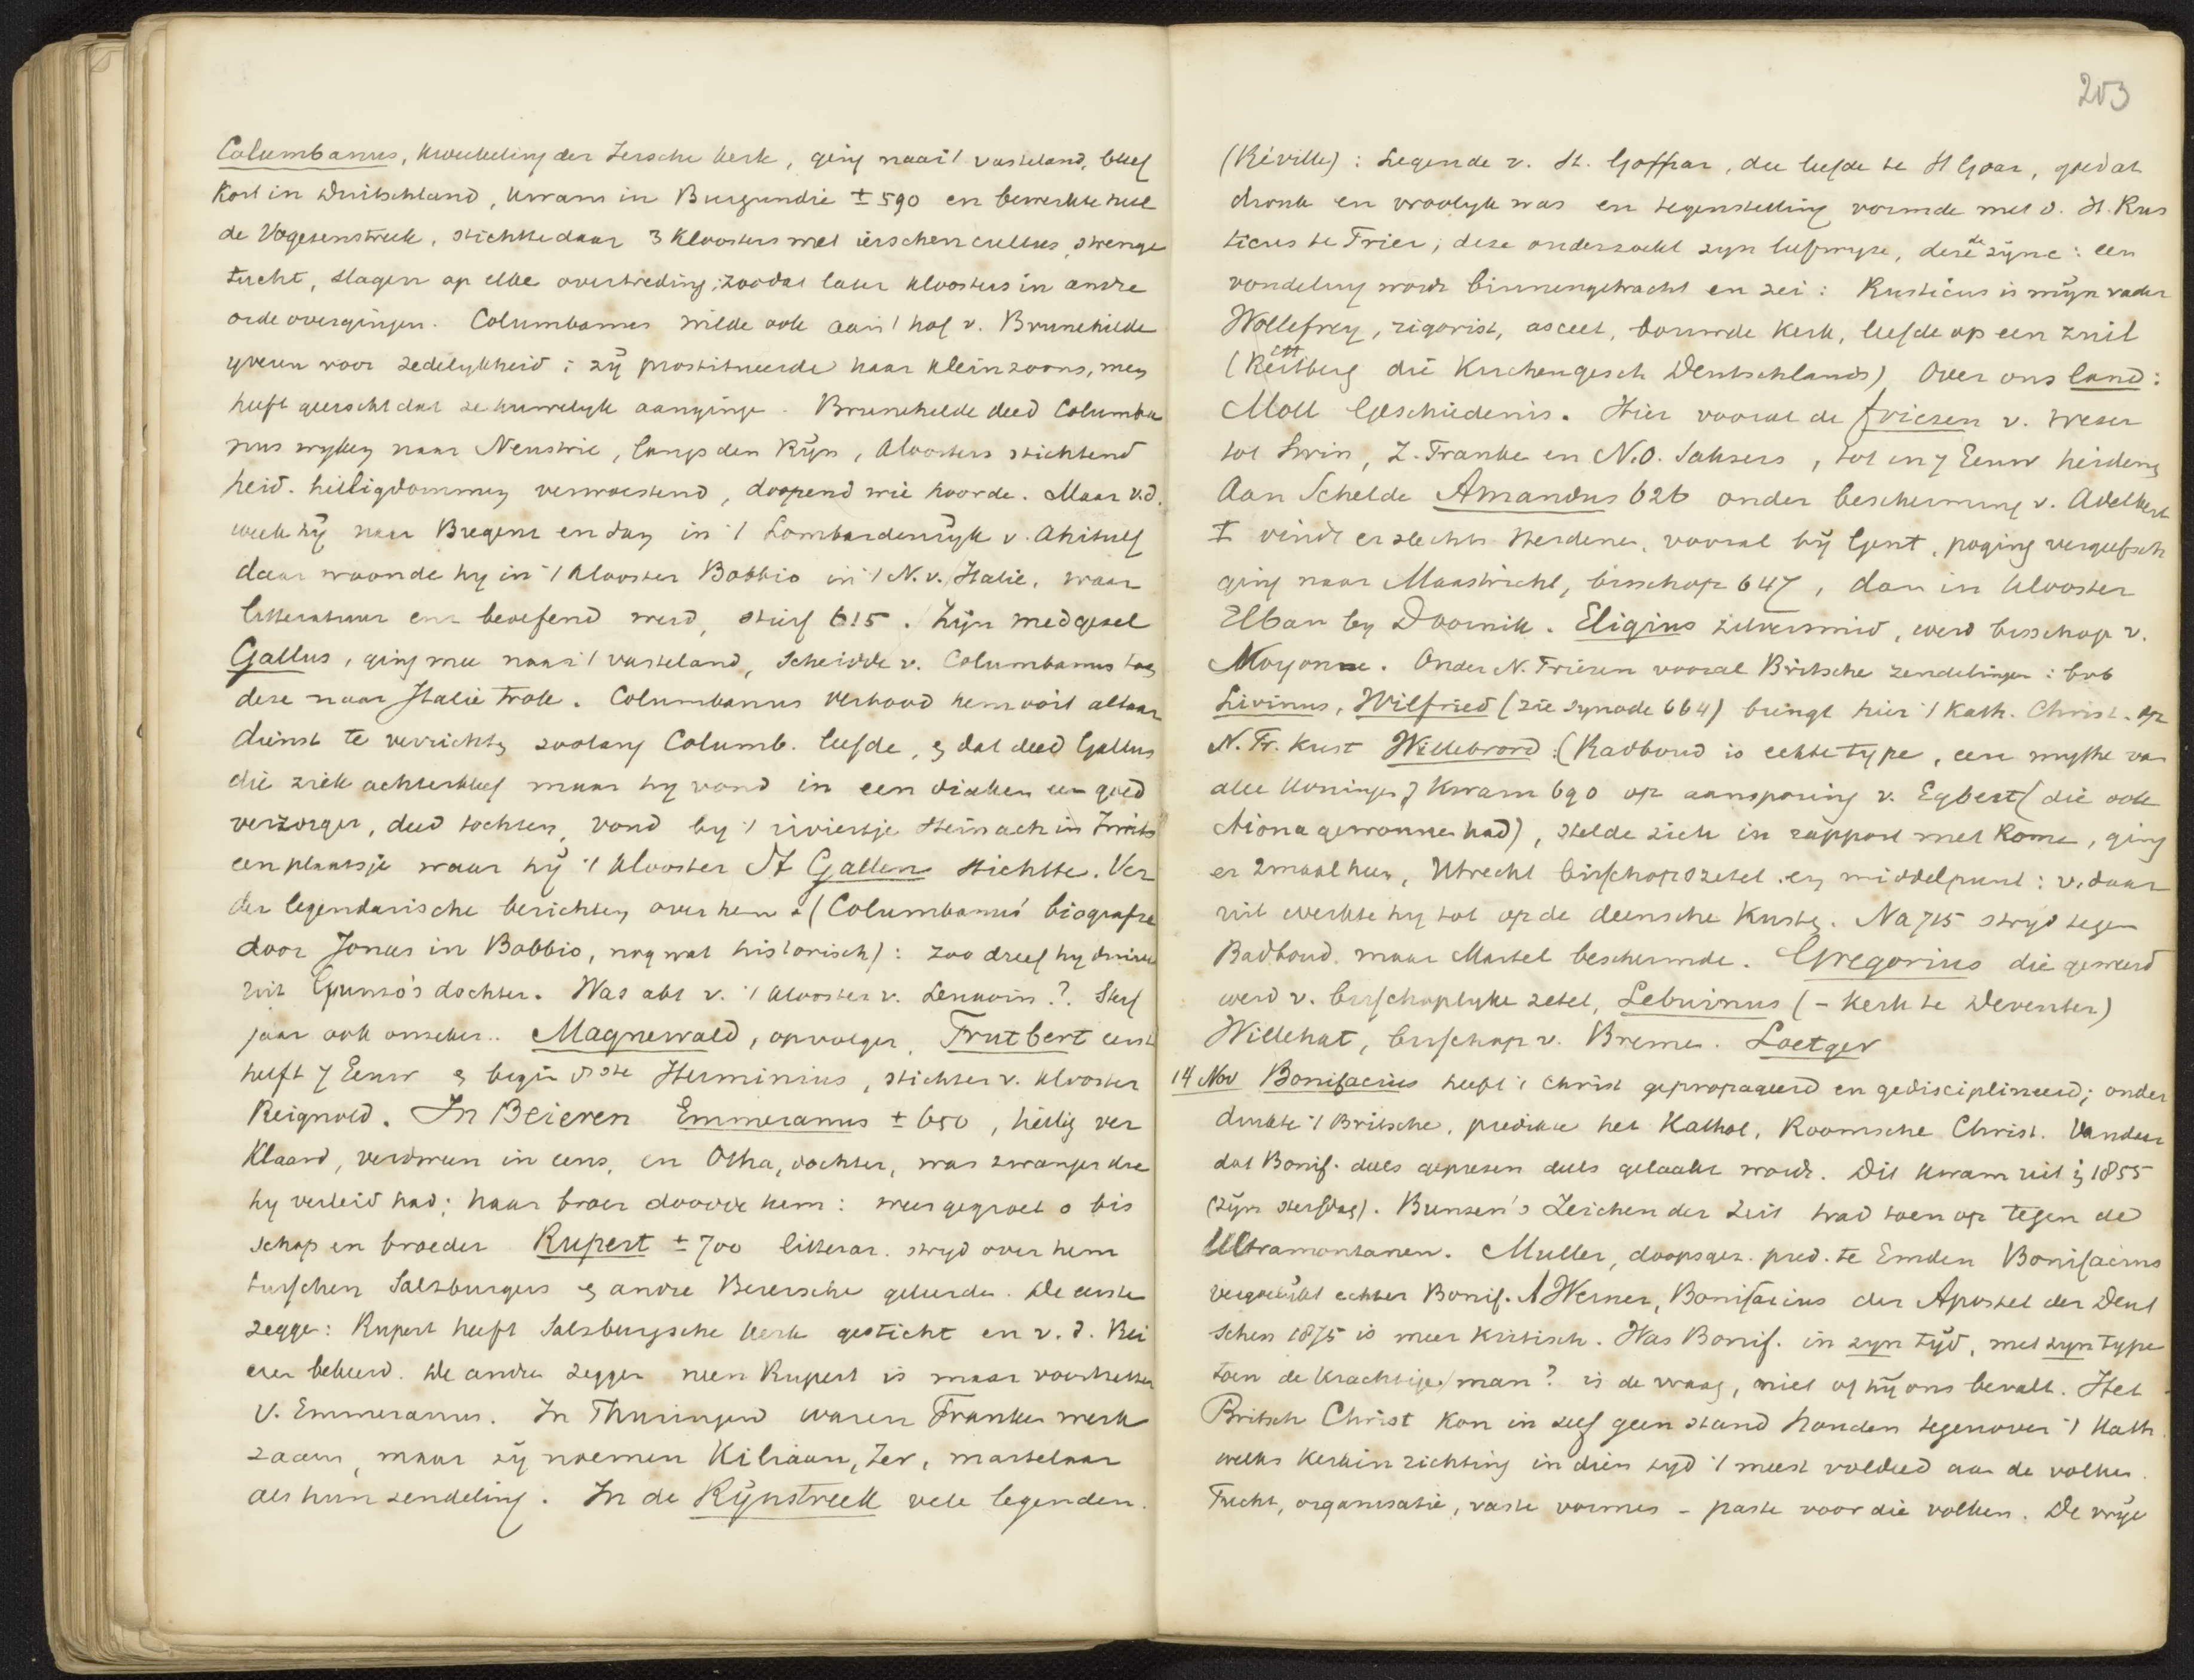 Columbanus, kweekeling der Iersche kerk, ging naar 't vasteland, bleef
kort in Duitschland, kwam in Burgundie ± 590 en bewerkte heel
de Vogesenstreek, stichtte daar 3 kloosters met ierschen cultus, strenge
tucht, slagen op elke overtreding; zoodat later kloosters in andre
orde overgingen. Columbanus wilde ook aan 't hof v. Brunehilde
yveren voor zedelykheid; zy prostitueerde haar kleinzoons, men
heeft geeischt dat ze huwelyk aangingen. Brunehilde deed Columba
nus wyken naar Neustrie, langs den Ryn, kloosters stichtend
heid. heiligdommen verwoestend, doopend wie hoorde. Maar v.d.
week hy naar Bregenz en dan in 't Lombardenryk v.
daar woonde hy in 't klooster Bobbio in 't N. v. Italie, waar
litteratuur enz beoefend werd, stierf 615. Zyn medgezel
Gallus, ging mee naar 't vasteland, scheidde v. Columbanus toen
deze naar Italie trok. Columbanus verbood hem ooit altaar
dienst te verrichten zoolang Columb. leefde, en dat deed Gallus
die ziek achterbleef maar hy vond in een diaken een goed
verzorger, deed tochten, vond by 't riviertje Steinach in Zwits
een plaatsje waar hy 't klooster St Gallen stichtte. Ver
der legendarische berichten over hem (Columbanus' biografie
door Jonas in Bobbio, nog wat historisch): zoo dreef hy duivel
uit Gunzo's dochter. Was abt v. 't klooster v. Luxovin?. Sterf
jaar ook onzeker.. Magnewald, opvolger, Trutbert eerst
helft 7 Eeuw en begin 8ste Herminius, stichter v. klooster
Reignold. In Beieren Emmeranus ± 650, heilig ver
klaard, verdween in eens, en Otha, dochter, was zwanger die
hy verleid had; haar broer doodde hem: wees gegroet o bis
schop en broeder Rupert ± 700 litterar. stryd over hem
tusschen Salzburgers en andre Beiersche geleerden. De eerste
zeggen: Rupert heeft Salzburgsche kerk gesticht en v. d. Bei
eren bekeerd. De andre zeggen neen Rupert is maar voortzetter
v. Emmeranus. In Thuringen waren Franken werk
zaam, maar zy noemen Kiliaan, Ier, martelaar
als hun zendeling. In de Rynstreek vele legenden.
203
(Réville): Legende v. St. Goffrar, die leefde te St Goar, goed at
dronk en vroolyk was en tegenstelling vormde met d. H. Rus
ticus te Trier; deze onderzoekt zyn leefwyze, deze de zyne: een
vondeling wordt binnengebracht en zei: Rusticus is myn vader
Wollefrey, rigorist, asceet, bouwde kerk, leefde op een zuil
(Rettberg die Kirchengesch Deutschlands) Over ons land:
Moll Geschiedenis. Hier vooral de friezen v. Weser
tot Swin, Z. Franken en N.O. Saksers, tot in 7 Eeuw heidens
Aan Schelde Amandus 626 onder bescherming v. Adelbert
I vindt er slechts Heidenen, vooral by Gent, poging vergeefsch
ging naar Maastricht, bisschop 647, dan in klooster
Elban by Doornik. Eligius zilversmid, werd bisschop v.
Noyonne. Onder N. Friezen vooral Britsche zendelingen: bvb
Livinus, Wilfried (zie synode 664) brengt hier 't kath. Christ. op
N. Fr. kust Willebrord. (Radboud is echte type, een mythe van
alle koningen) kwam 690 op aansporing v. Egbert (die ook
Niona gewonnen had), stelde zich in rapport met Rome, ging
er 2maal heen, Utrecht bisschopszetel en middelpunt: v. daar
uit werkte hy tot op de deensche kusten. Na 715 stryd tegen
Radboud. maar Martel beschermde. Gregorius die geweerd
werd v. bisschoplyke zetel, Lebuinus (- kerk te Deventer)
Willehat, bisschop v. Bremen. Loetger
14 Nov Bonifacius heeft 't Christ gepropageerd en gedisciplineerd; onder
drukte 't Britsche, predikte het Kathol. Roomsche Christ. Vandaar
dat Bonif. deels geprezen deels gelaakt wordt. Dit kwam uit in 1855
(zyn sterfdag). Bunsen's Zeichen der Zeit trad toen op tegen de
Ultramontanen. Muller, doopsgez. pred. te Emden Bonifacius
vergoelykt echter Bonif. A Werner, Bonifacius der Apostel der Deut
schen 1875 is meer kritisch. Was Bonif. in zyn tyd, met zyn type
toen de krachtige man? is de vraag, niet of hy ons bevalt. Het
Britsch Christ kon in zelf geen stand houden tegenover 't Kath
welks kerkinrichting in dien tyd 't meest voldeed aan de volken.
Tucht, organisatie, vaste vormen - paste voor die volken. De vrye